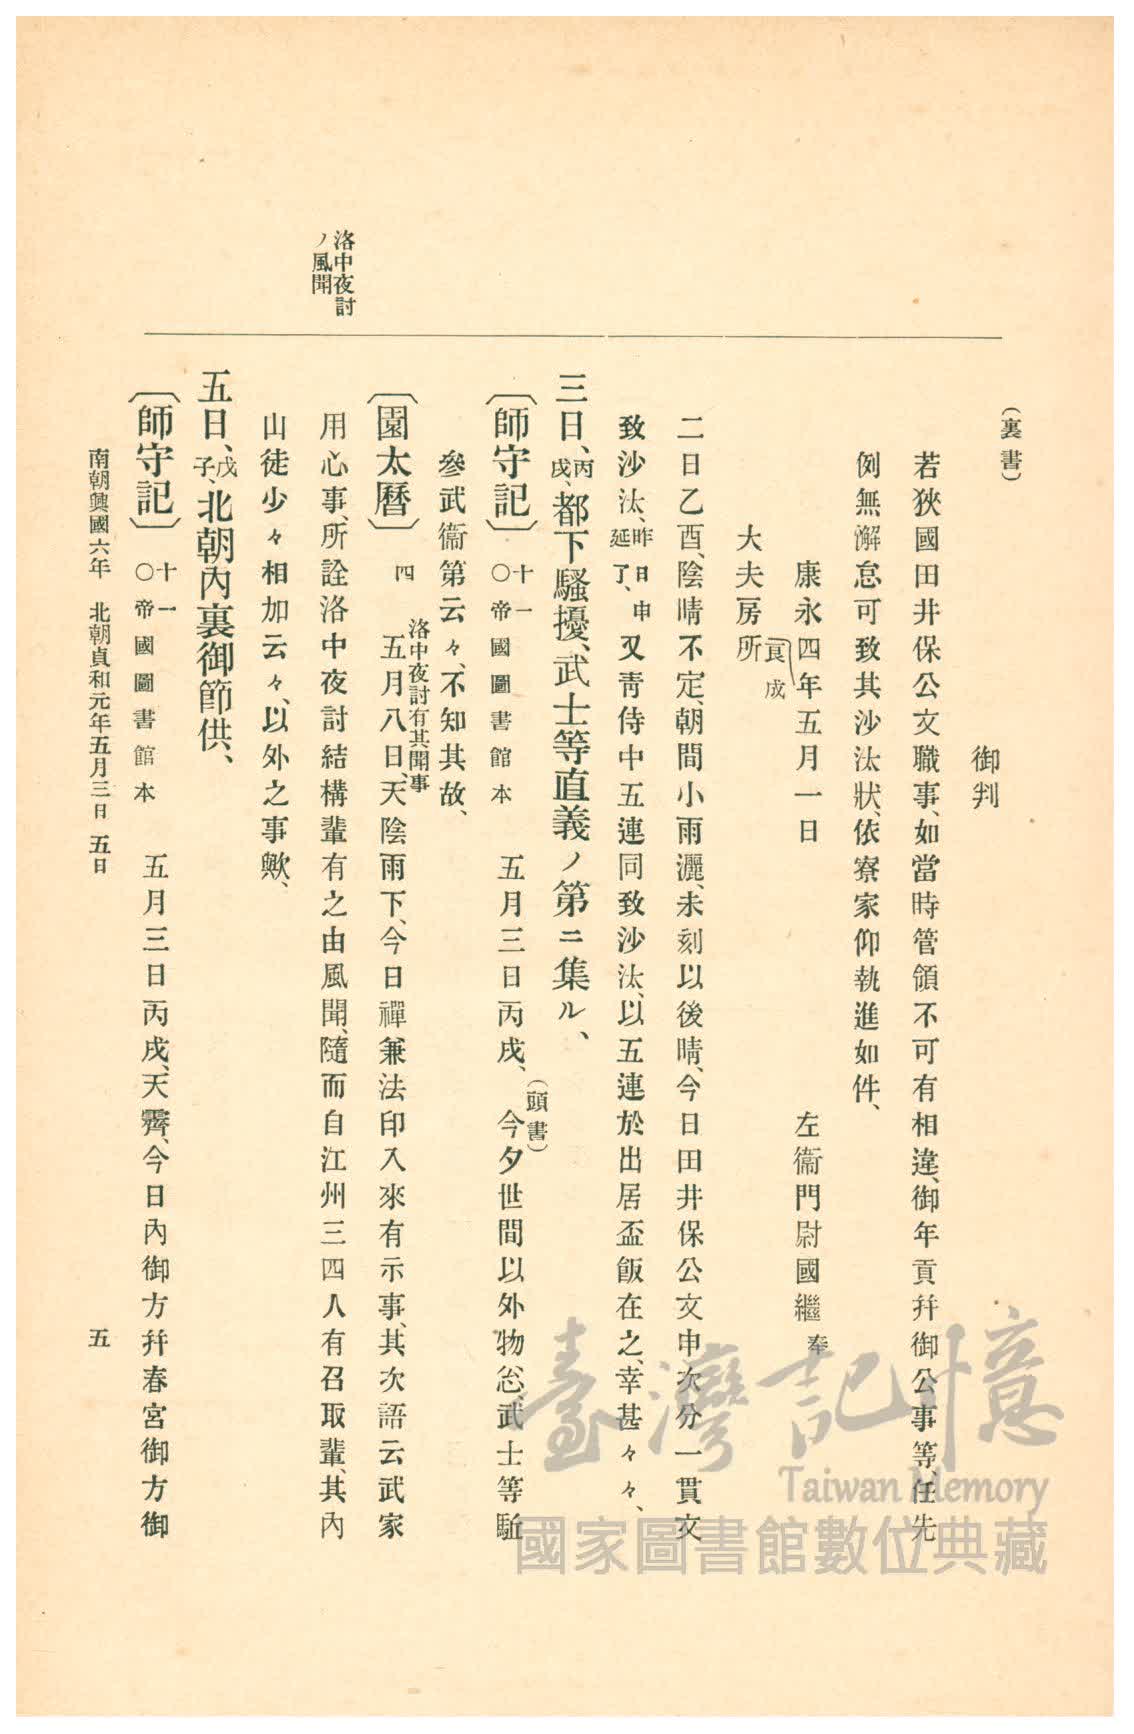 (裏書)
御判
若狹國田井保公文職事、如當時管領不可有相違、御年貢幷御公事等、任先
例無懈怠可致其沙汰狀、依寮家仰執進如件、
康永四年五月一日　左衞門尉國繼奉
大夫房所
二日乙酉、陰晴不定、朝間小雨灑、未刻以後晴、今日田井保公文申次分一貫文
致沙汰、昨日申延了、又靑侍中五連同致沙汰、以五連於出居盃飯在之、幸甚々々、
三日、丙戌、都下騷擾、武士等直義ノ第ニ集ル、
〔師守記〕十一〇帝國圖書館本　五月三日丙戌、(頭書)今夕世間以外物忩、武士等馳
參武衞第云々、不知其故、
〔園太曆〕四　洛中夜討有其聞事
五月八日、天陰雨下、今日禪兼法印入來有示事、其次語云武家
用心事、所詮洛中夜討結構輩有之由風聞、隨而自江州三四人有召取輩、其內
山徒少々相加云々、以外之事歟、
洛中夜討
ノ風聞
五日、戊子、北朝內裏御節供、
〔師守記〕十一〇帝國圖書館本　五月三日丙戌、天霽、今日內御方幷春宮御方御
南朝興國六年　北朝貞和元年五月三日　五日　五
臺灣記憶
Taiwan Memory
國家圖書館數位典藏